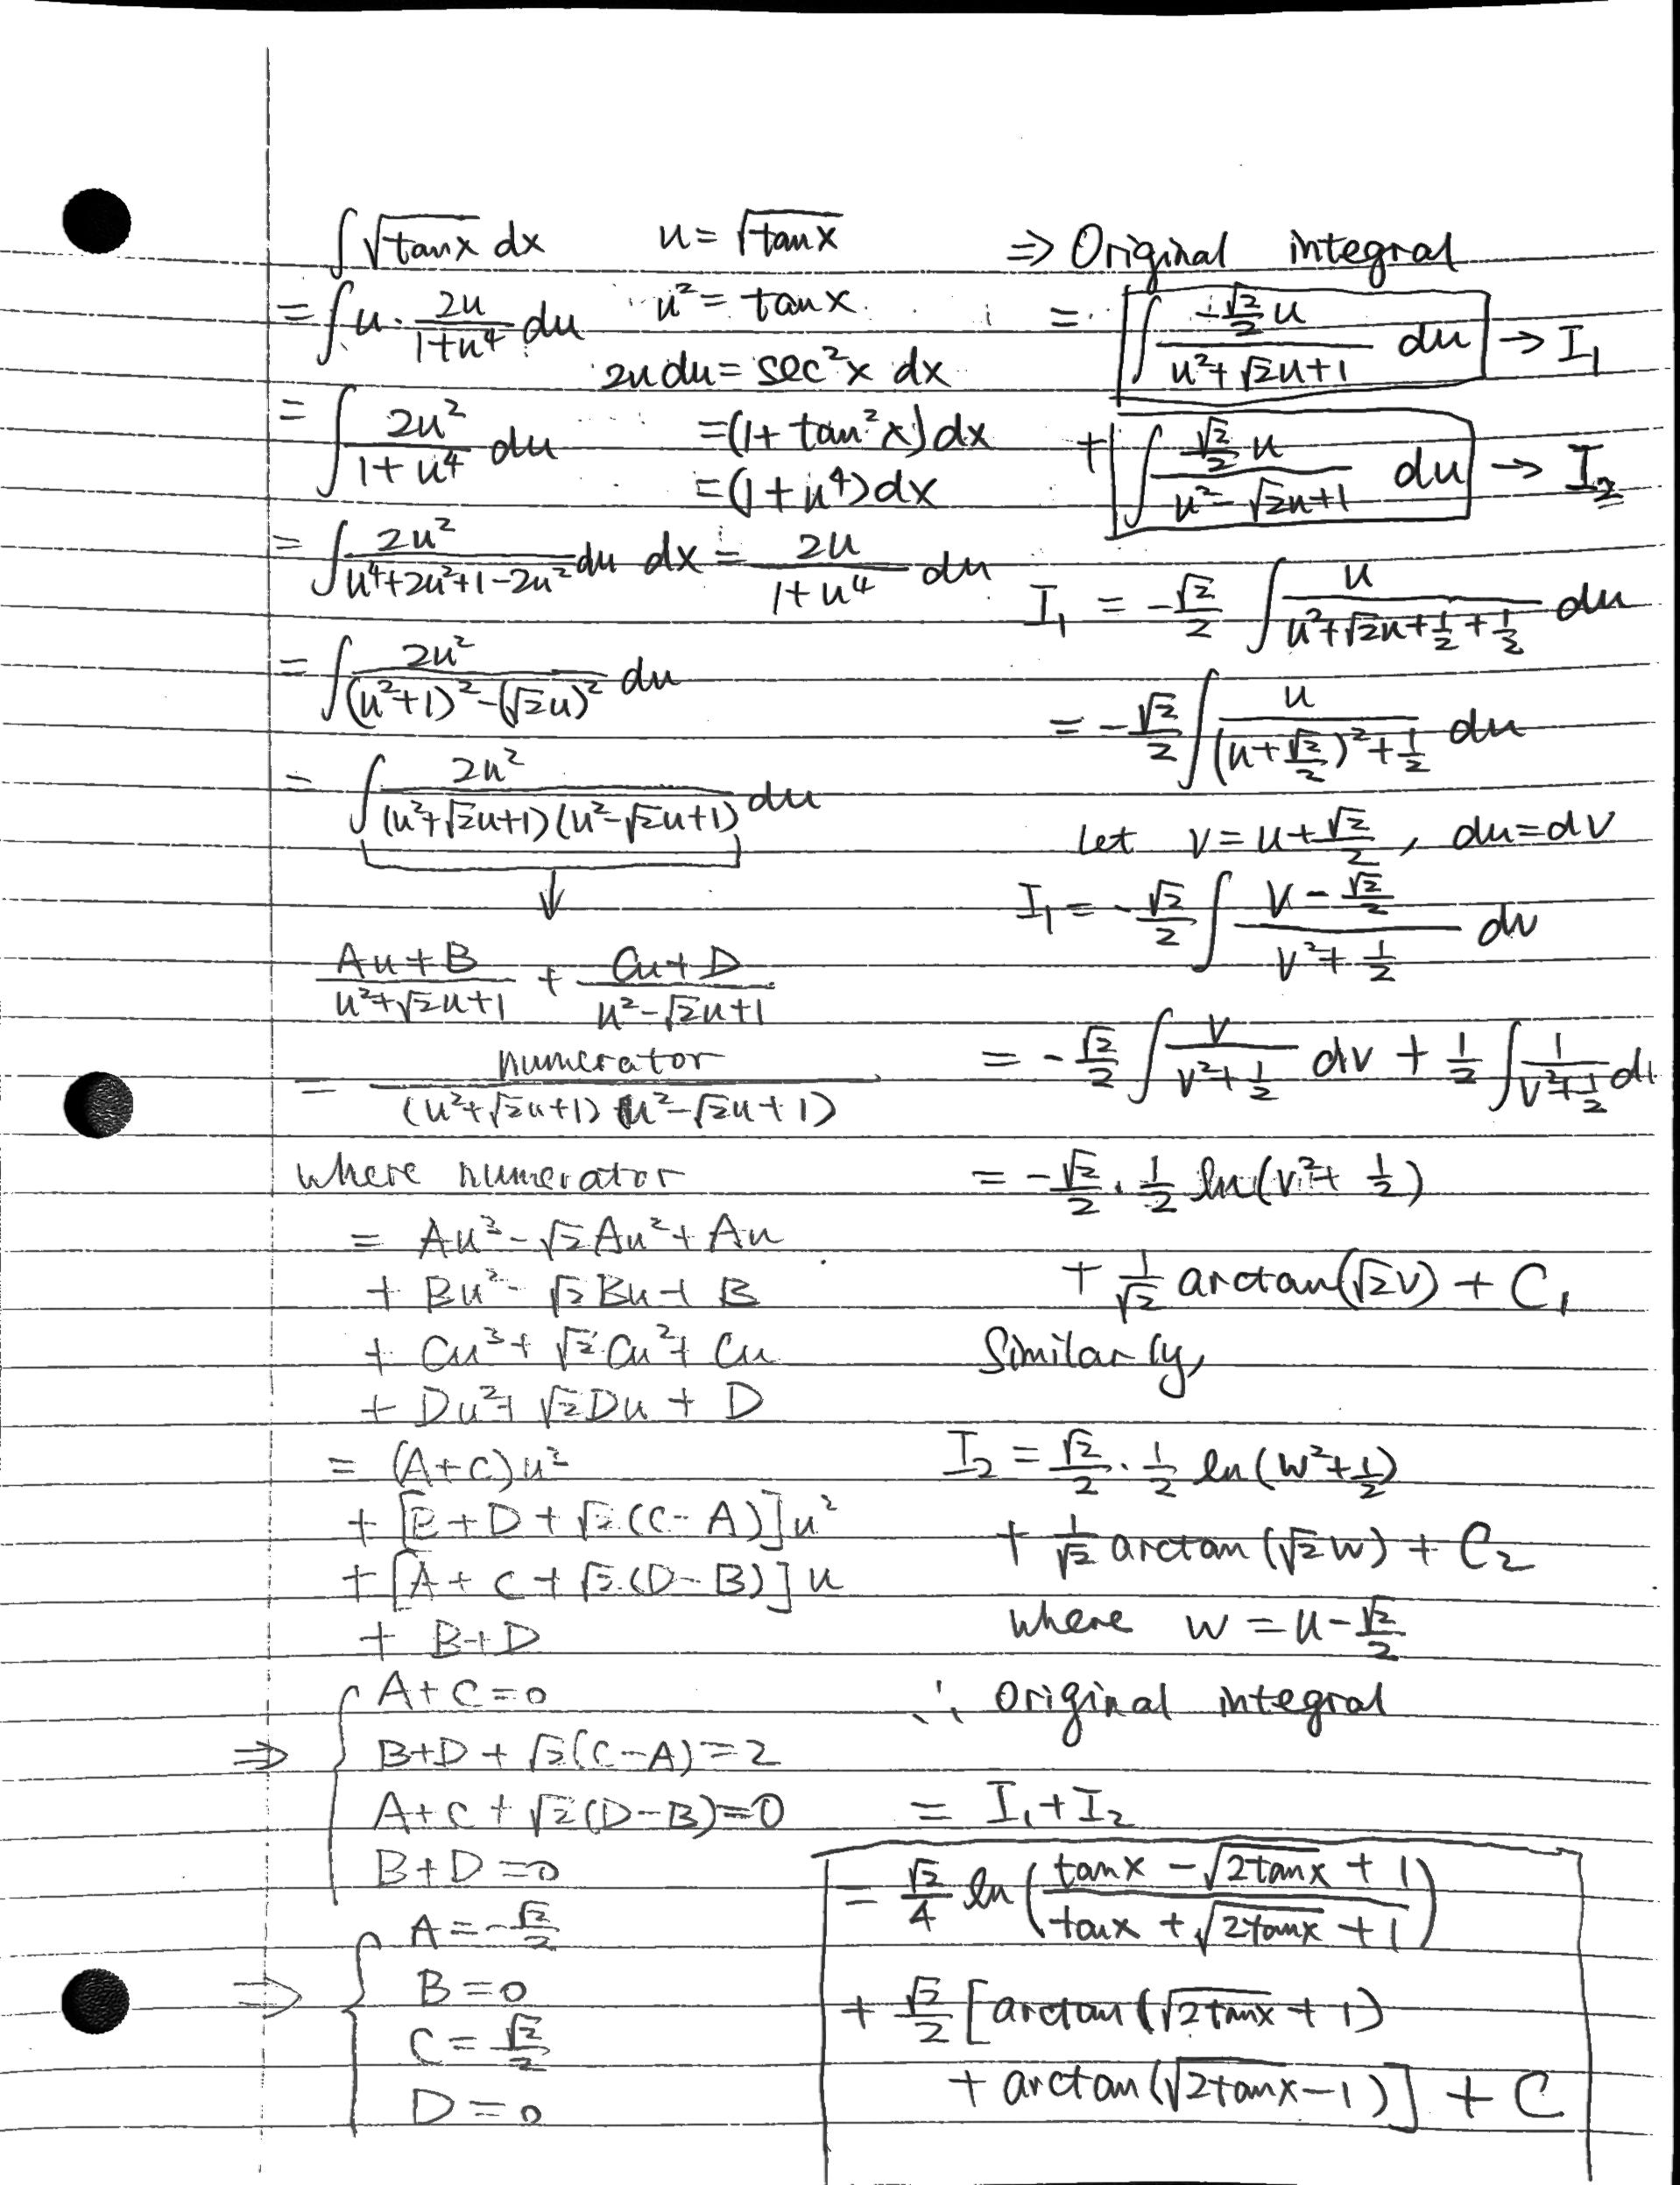 ∫√(tanx) dx    u = √(tanx)
= ∫u · 2u/(1+u⁴) du    u² = tanx
2u du = sec²x dx
= ∫ 2u²/(1+u⁴) du    = (1 + tan²x) dx
= (1 + u⁴) dx
= ∫ 2u²/(u⁴+2u²+1-2u²) du    dx = 2u/(1+u⁴) du
= ∫ 2u²/((u²+1)² - (√2u)²) du
= ∫ 2u²/((u²+√2u+1)(u²-√2u+1)) du
↓
(Au+B)/(u²+√2u+1) + (Cu+D)/(u²-√2u+1)
= numerator/((u²+√2u+1)(u²-√2u+1))
where numerator
= Au³ - √2Au² + Au
+ Bu² - √2Bu + B
+ Cu³ + √2Cu² + Cu
+ Du² + √2Du + D
= (A+C)u³
+ [B+D+√2(C-A)]u²
+ [A+C+√2(D-B)]u
+ B+D
⇒ { A+C=0
B+D+√2(C-A)=2
A+C+√2(D-B)=0
B+D=0
⇒ { A = -√2/2
B=0
C = √2/2
D=0
⇒ Original integral
= ∫ (-√2/2 u)/(u²+√2u+1) du → I₁
+ ∫ (√2/2 u)/(u²-√2u+1) du → I₂
I₁ = -√2/2 ∫ u/(u²+√2u+1/2+1/2) du
= -√2/2 ∫ u/((u+√2/2)²+1/2) du
Let v = u+√2/2, du=dv
I₁ = -√2/2 ∫ (v-√2/2)/(v²+1/2) dv
= -√2/2 ∫ v/(v²+1/2) dv + 1/2 ∫ 1/(v²+1/2) dv
= -√2/2 · 1/2 ln(v²+1/2)
+ 1/√2 arctan(√2v) + C₁
Similarly,
I₂ = √2/2 · 1/2 ln(w²+1/2)
+ 1/√2 arctan(√2w) + C₂
where w = u-√2/2
∴ original integral
= I₁+I₂
= √2/4 ln((tanx - √(2tanx) + 1)/(tanx + √(2tanx) + 1))
+ √2/2 [arctan(√(2tanx) + 1)
+ arctan(√(2tanx) - 1)] + C